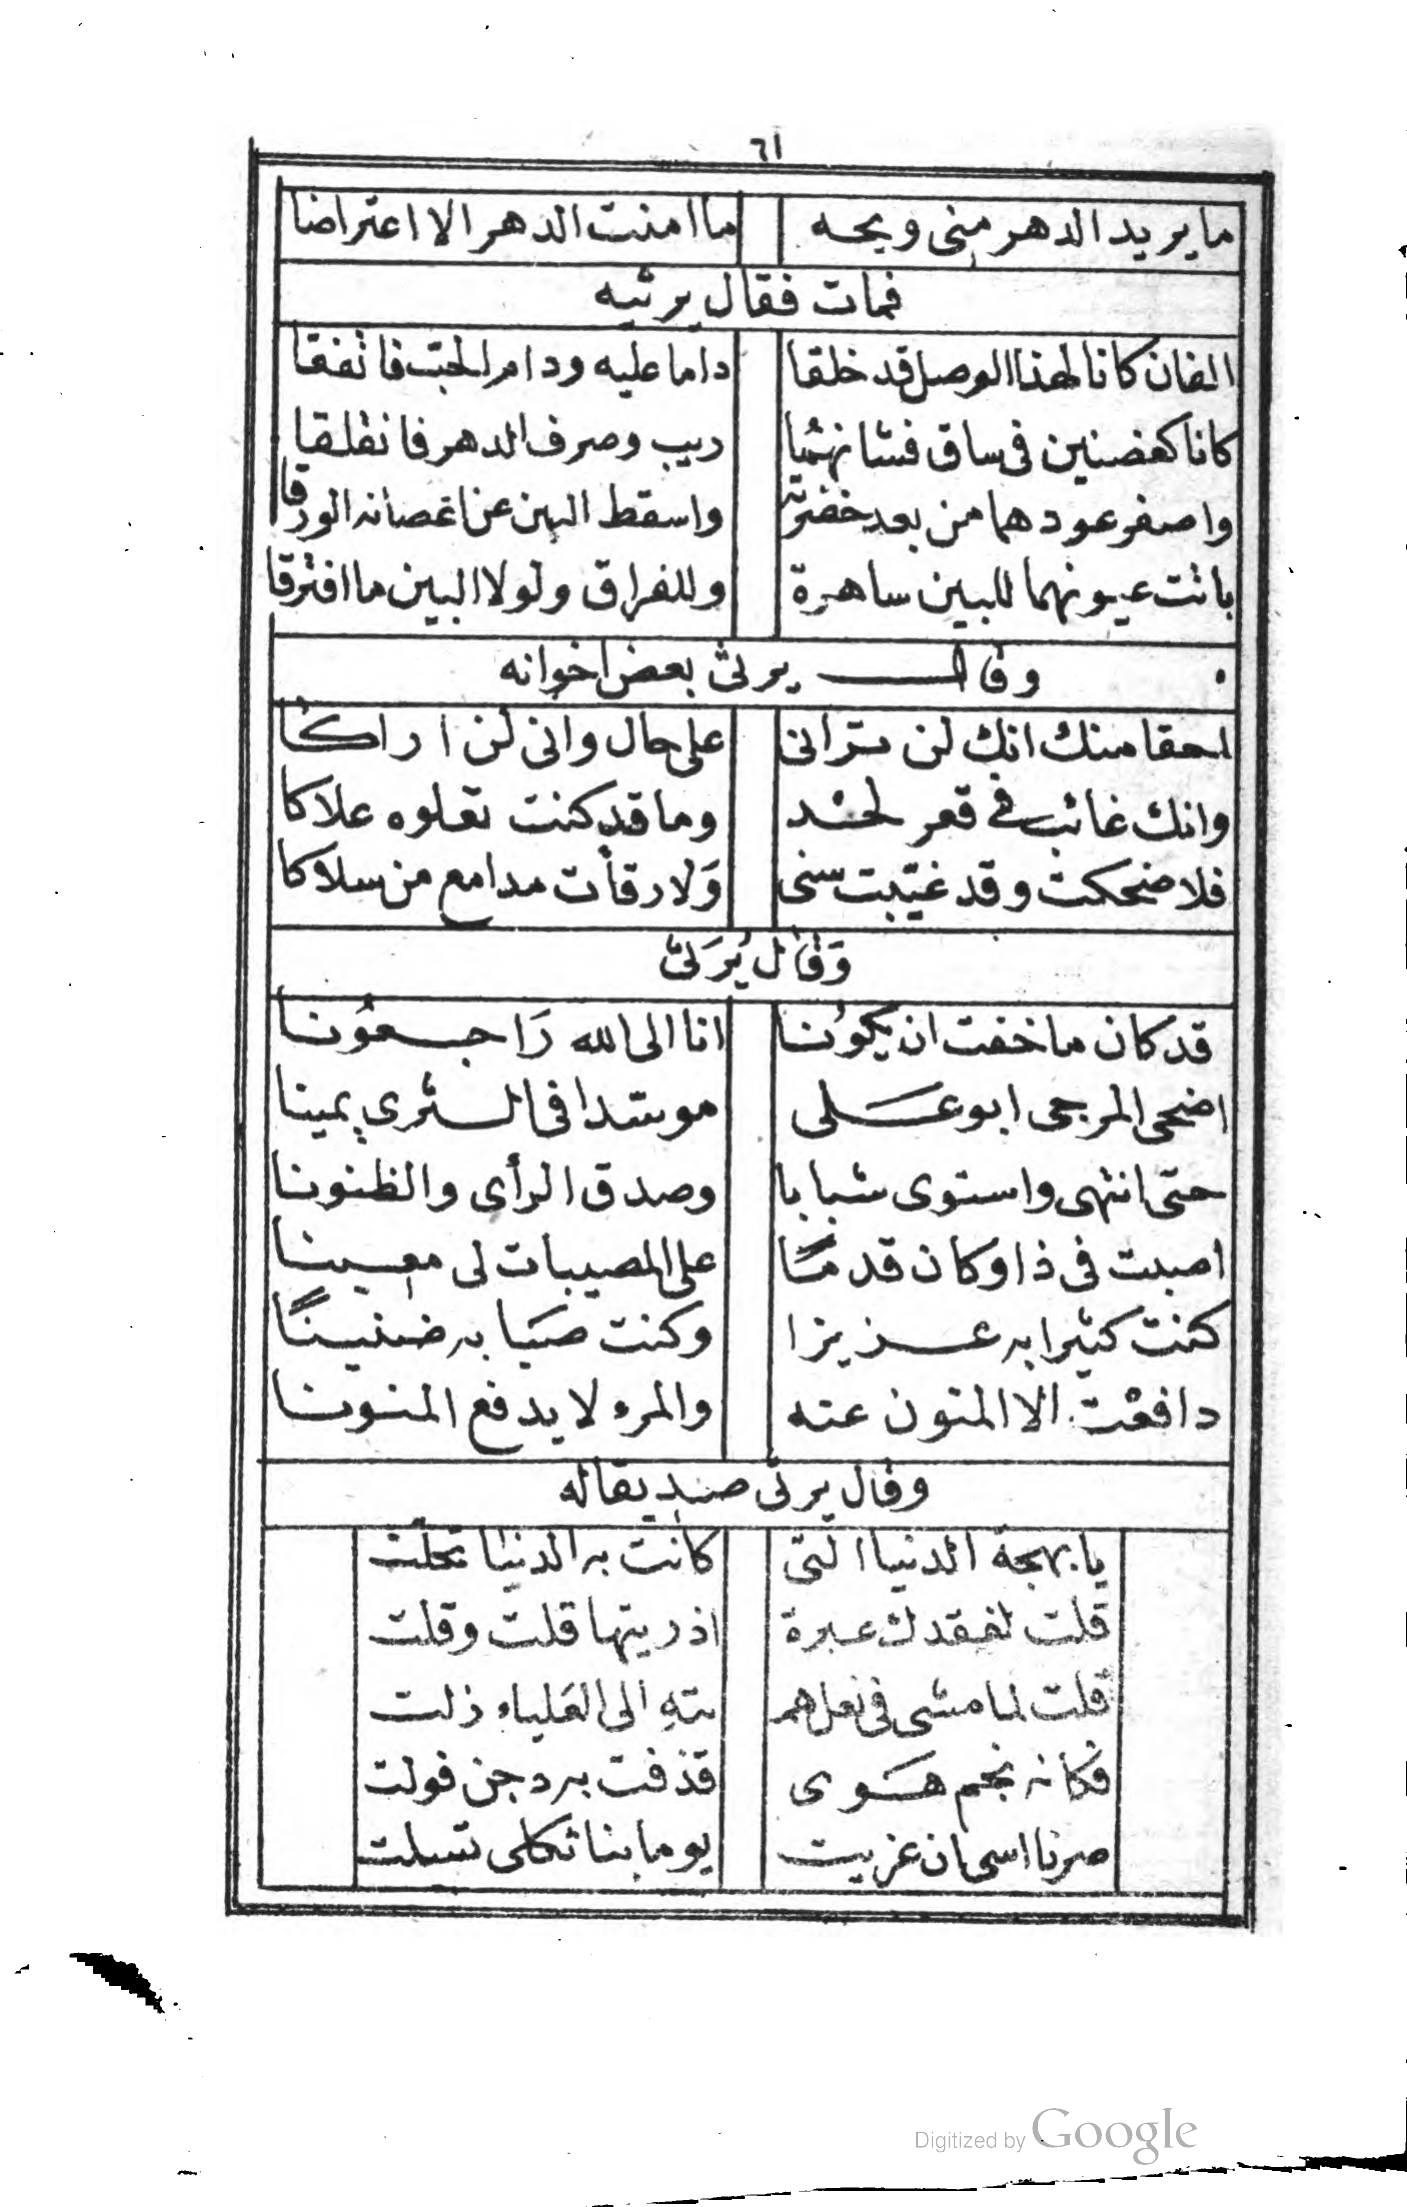 ٦١
ما يريد الدهر منى ويحه ما امنت الدهر الا اعتراضا
فمات فقال يرثيه
الفان كانا لهذا الوصل قد خلقا داما عليه ودام الحب فاتفقا
كانا كغصنين فى ساق فشانهما ريب وصرف الدهر فانفلقا
واصفر عودهما من بعد خضرته واسقط البين عن اغصانه الورقا
باتت عيونهما للبين ساهرة وللفراق ولولا البين ما افترقا
وقال يرثى بعض اخوانه
احقا منك انك لن ترانى على حال وانى لن اراكا
وانك غائب في قعر لحد وما قد كنت تعلوه علاكا
فلا ضحكت وقد غيّبت سنى وَلا رقأت مدامع من سلاكا
وَقال يَرثى
قد كان ما خفت ان يكونا انا الى الله رَاجعُونا
اضحى المرجى ابو على موسّدا فى الثرى يمينا
حتى انتهى واستوى شبابا وصدق الرأى والظنونا
اصبت فى ذا وكان قدمًا على المصيبات لى معينا
كنت كثيرا به عزيزا وكنت صبا به ضنينًا
دافعت الا المنون عنه والمرء لا يدفع المنونا
وقال يرثى صديقا له
يا بهجة الدنيا التى كانت به الدنيا تحلّت
قلت لفقدك عبرة اذريتها قلت وقلت
قلت لما مشى فى نعل هم الى العَلياء ذلت
فكانه نجم هَوى قذفت به دجن فولت
صرنا اسى ان عزيت يوما بنا ثكلى تسلت
Digitized by Google